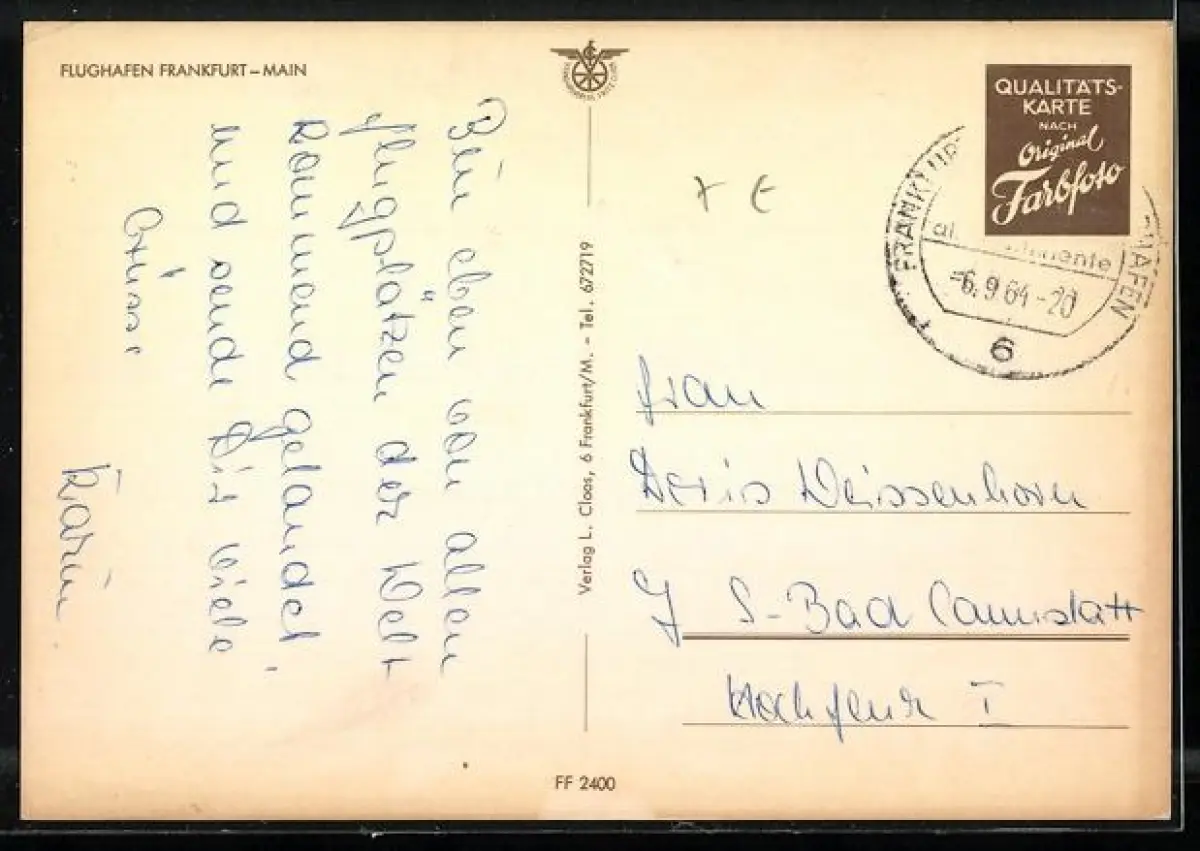 FLUGHAFEN FRANKFURT–MAIN
QUALITÄTS-
KARTE
NACH
Original
Farbfoto
FRANKFUR
HAFEN
-6.9.64-20
6
Bin eben von allen
Flugplätzen der Welt
kommend gelandet,
und sende Dir viele
Grüsse
Karin.
Verlag L. Cloos, 6 Frankfurt/M. – Tel. 672719
Frau
Doris Weissenhorn
7 S-Bad Cannstatt
I
FF 2400